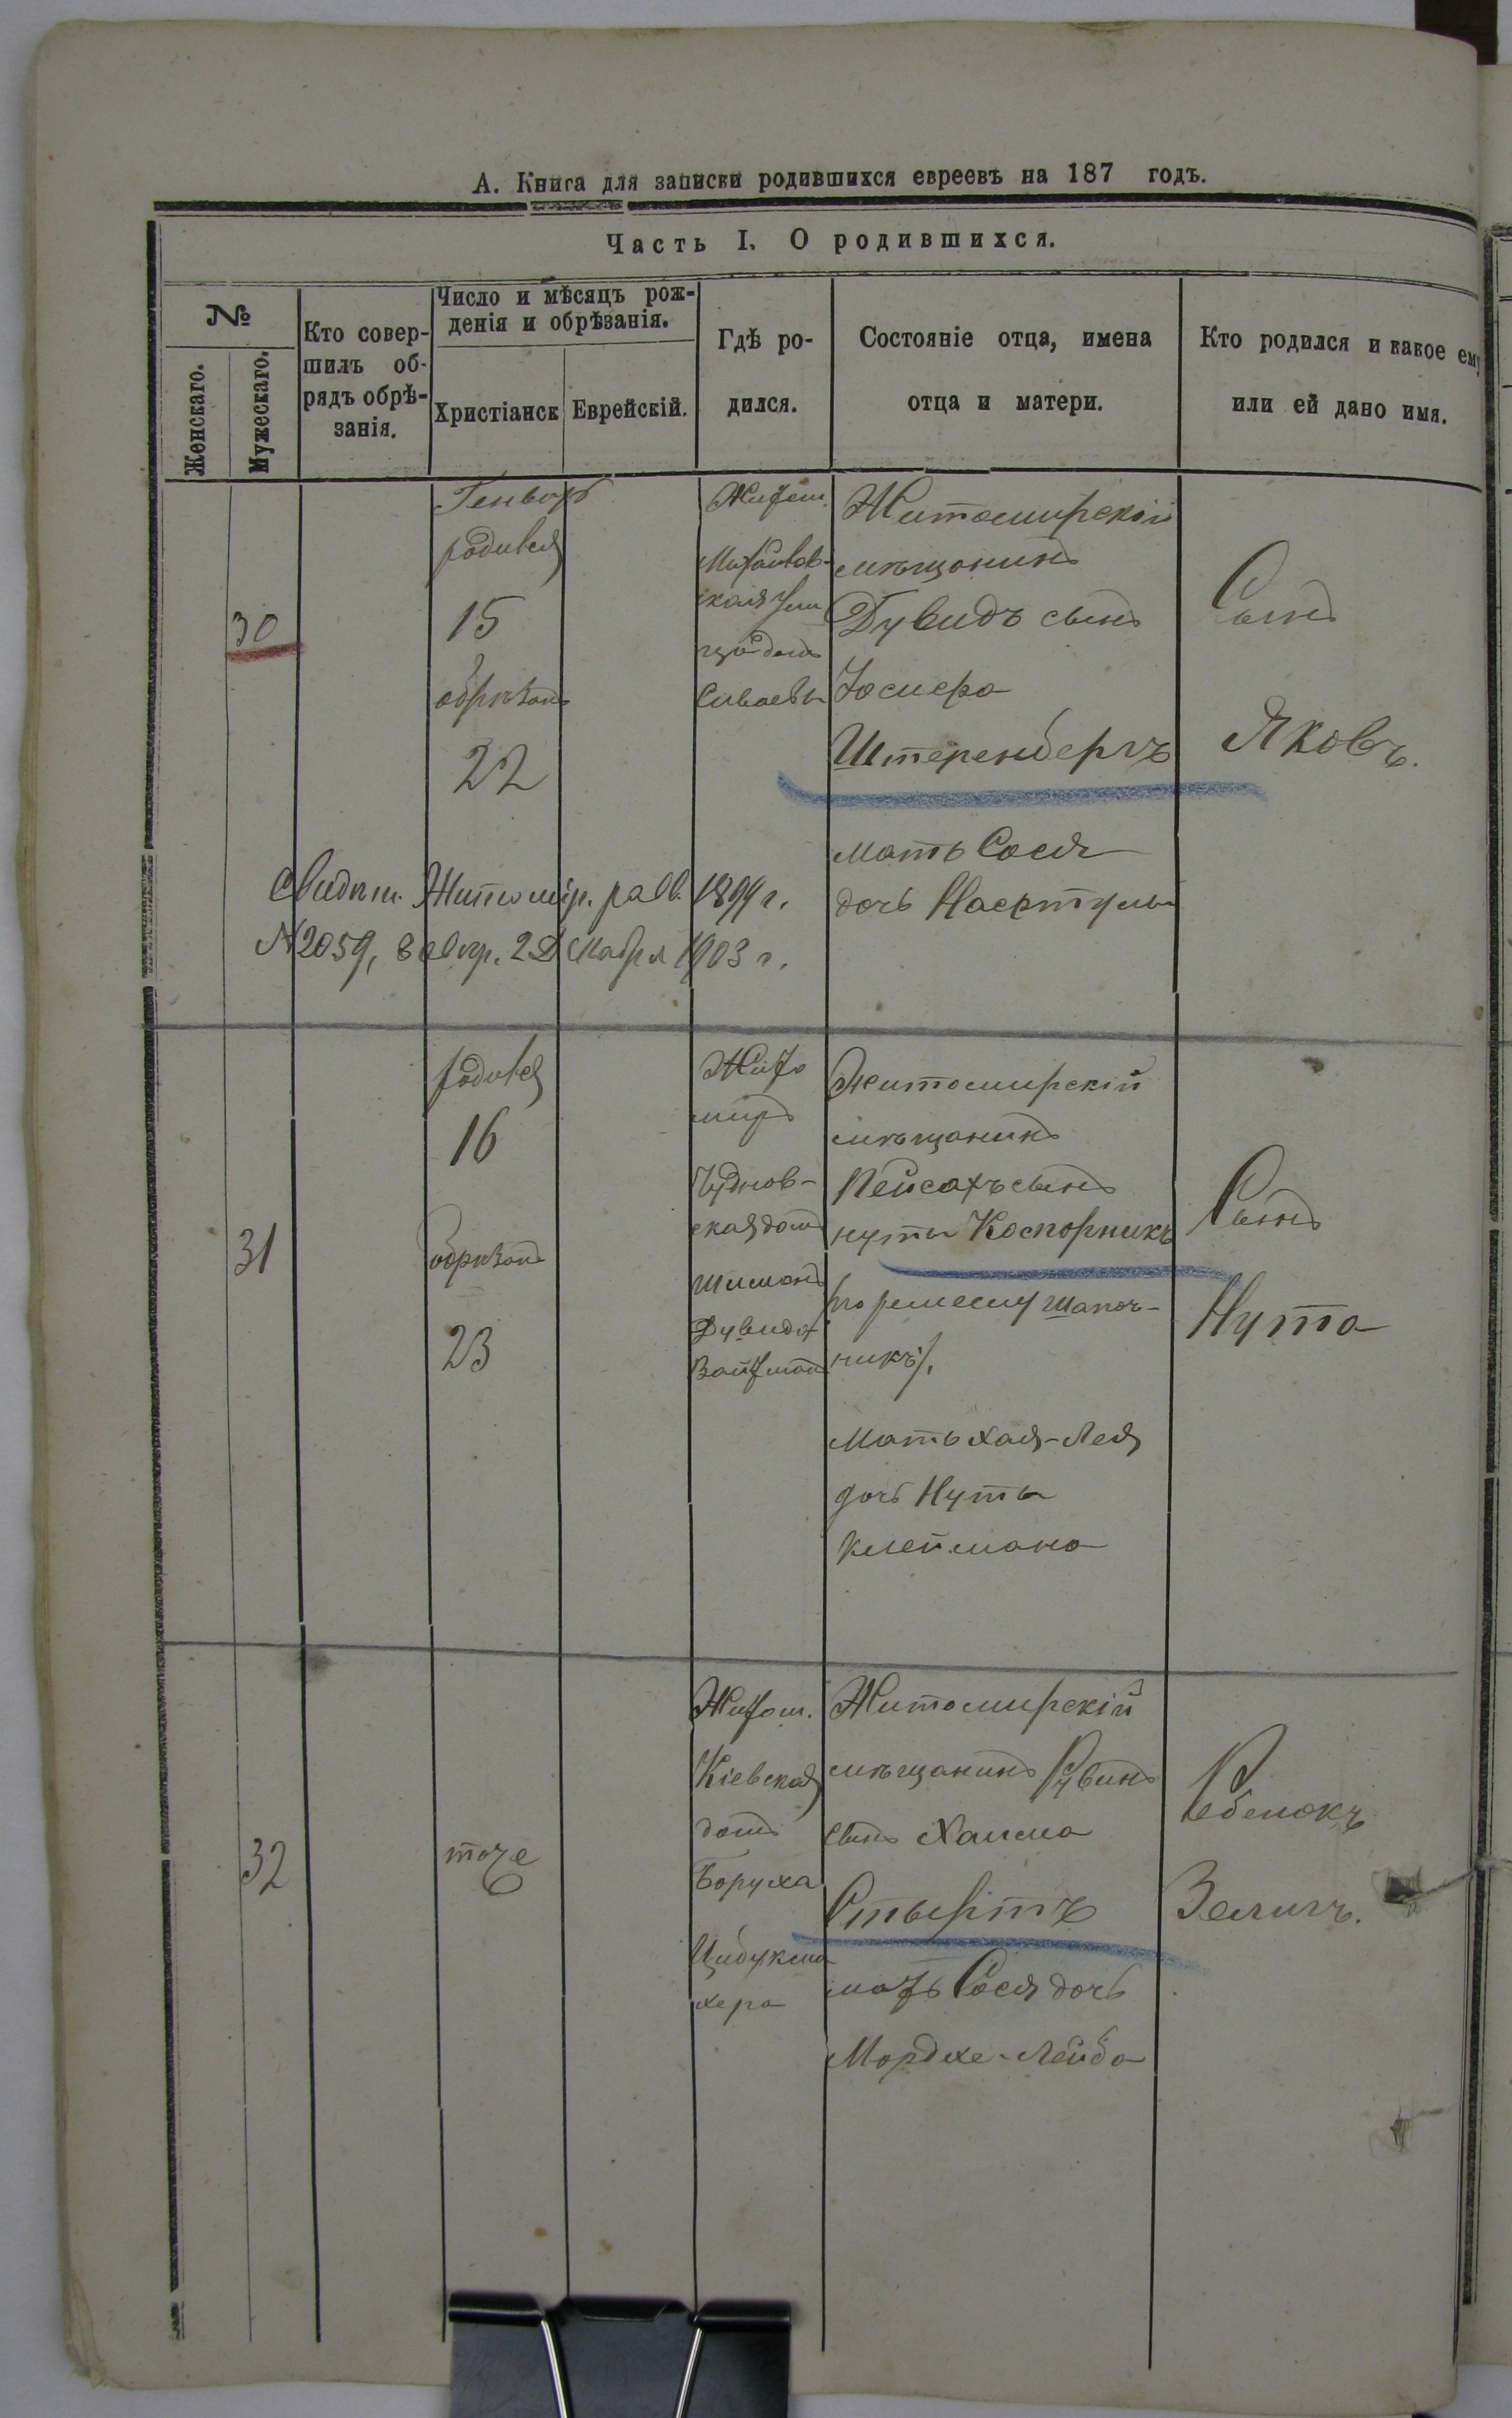 А. Книга для записки родившихся евреевъ на 187 годъ.
Часть I. О родившихся.
№
Женскаго.
Мужескаго.
Кто совер-
шилъ об-
рядъ обрѣ-
занія.
Число и мѣсяцъ рож-
денія и обрѣзанія.
Христіанск
Еврейскій.
Гдѣ ро-
дился.
Состояніе отца, имена
отца и матери.
Кто родился и какое ему
или ей дано имя.
30
Генварь
родився
15
обрѣзанъ
22
Житом.
Михайлов-
ская ули
ца домъ
Житомирскій
мѣщанинъ
Дувидъ сынъ
Іосифа
Штеренбергъ
мать Сося
дочь Нафтулы
Сынъ
Яковъ.
Свидѣт. Житомір. равв. 1899 г.
N 2059, 1903 г.
31
родився
16
обрѣзанъ
23
Жито
миръ
Чуднов-
ская домъ
Шимонъ
Дувида
Вайтман
Житомирскій
мѣщанинъ
Пейсахъ сынъ
Нуты Коспорникъ
по ремеслу шапоч-
никъ/.
Мать Хая-Лея
дочь Нуты
Клеймана
Сынъ
Нута
32
тоже
Житом.
Кіевская
домъ
Боруха
Цибукма
хера
Житомирскій
мѣщанинъ Рувинъ
сынъ Хаима
мать Сося дочь
Мордхе-Лейба
Ребенокъ
Зелигъ.